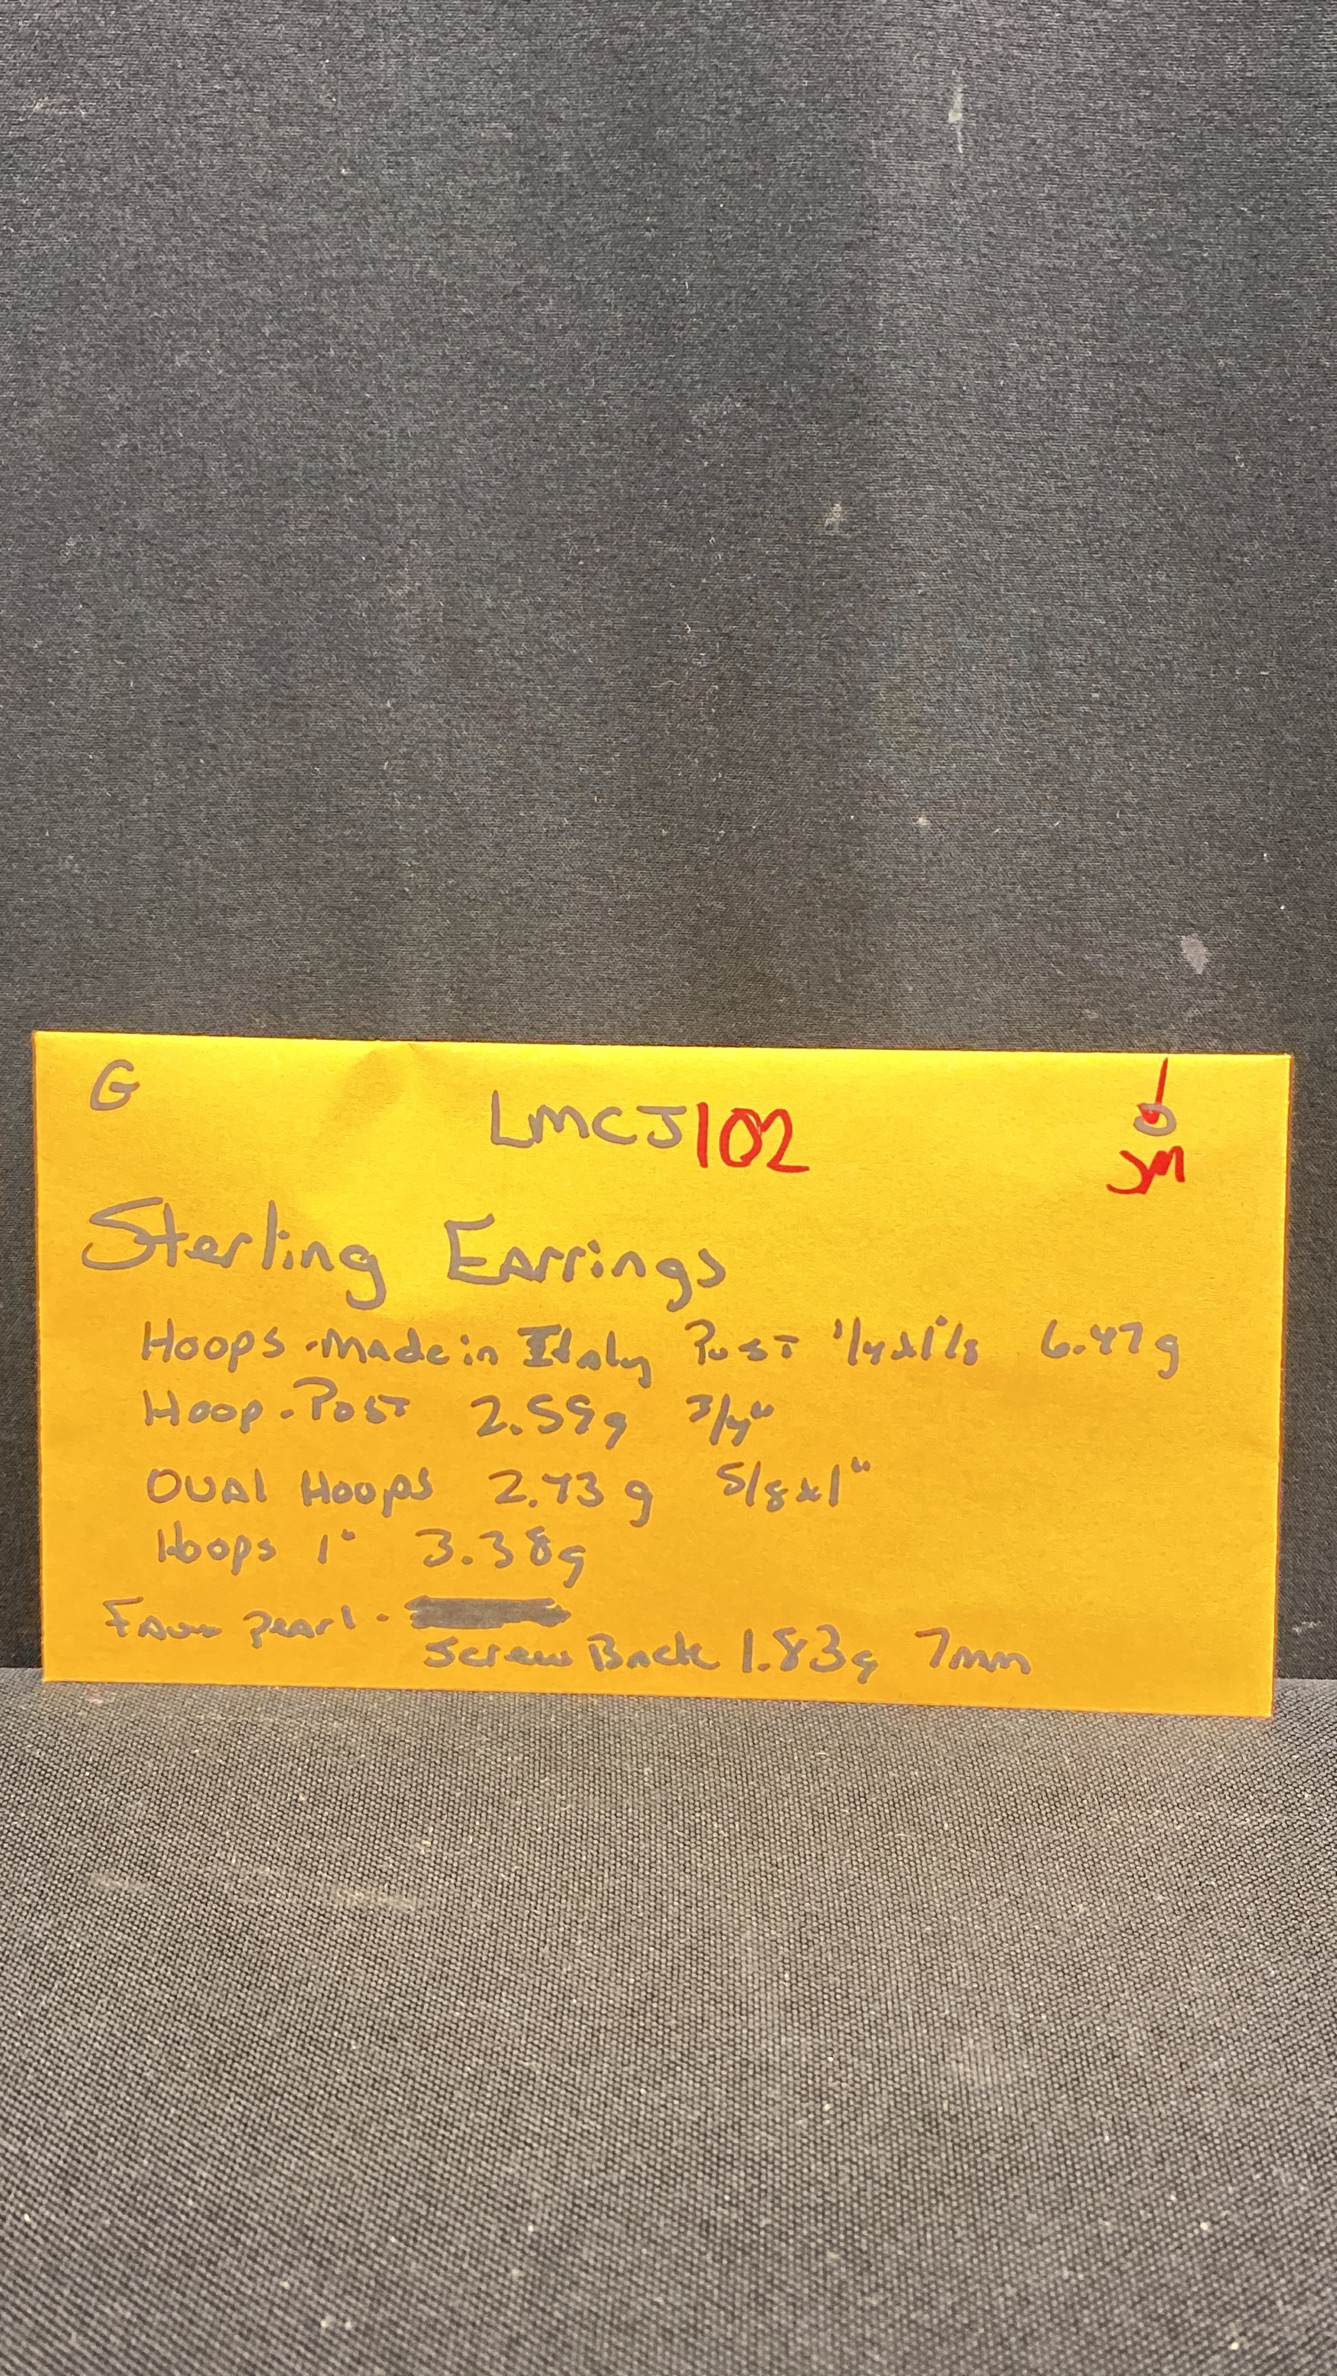 G LMCJ102
JM
Sterling Earrings
Hoops - made in Italy Post 1/4x1 1/8 6.47g
Hoop - Post 2.59g 3/4"
OVAL Hoops 2.73g 5/8x1"
Hoops 1" 3.38g
Faux pearl -
Screw Back 1.83g 7mm